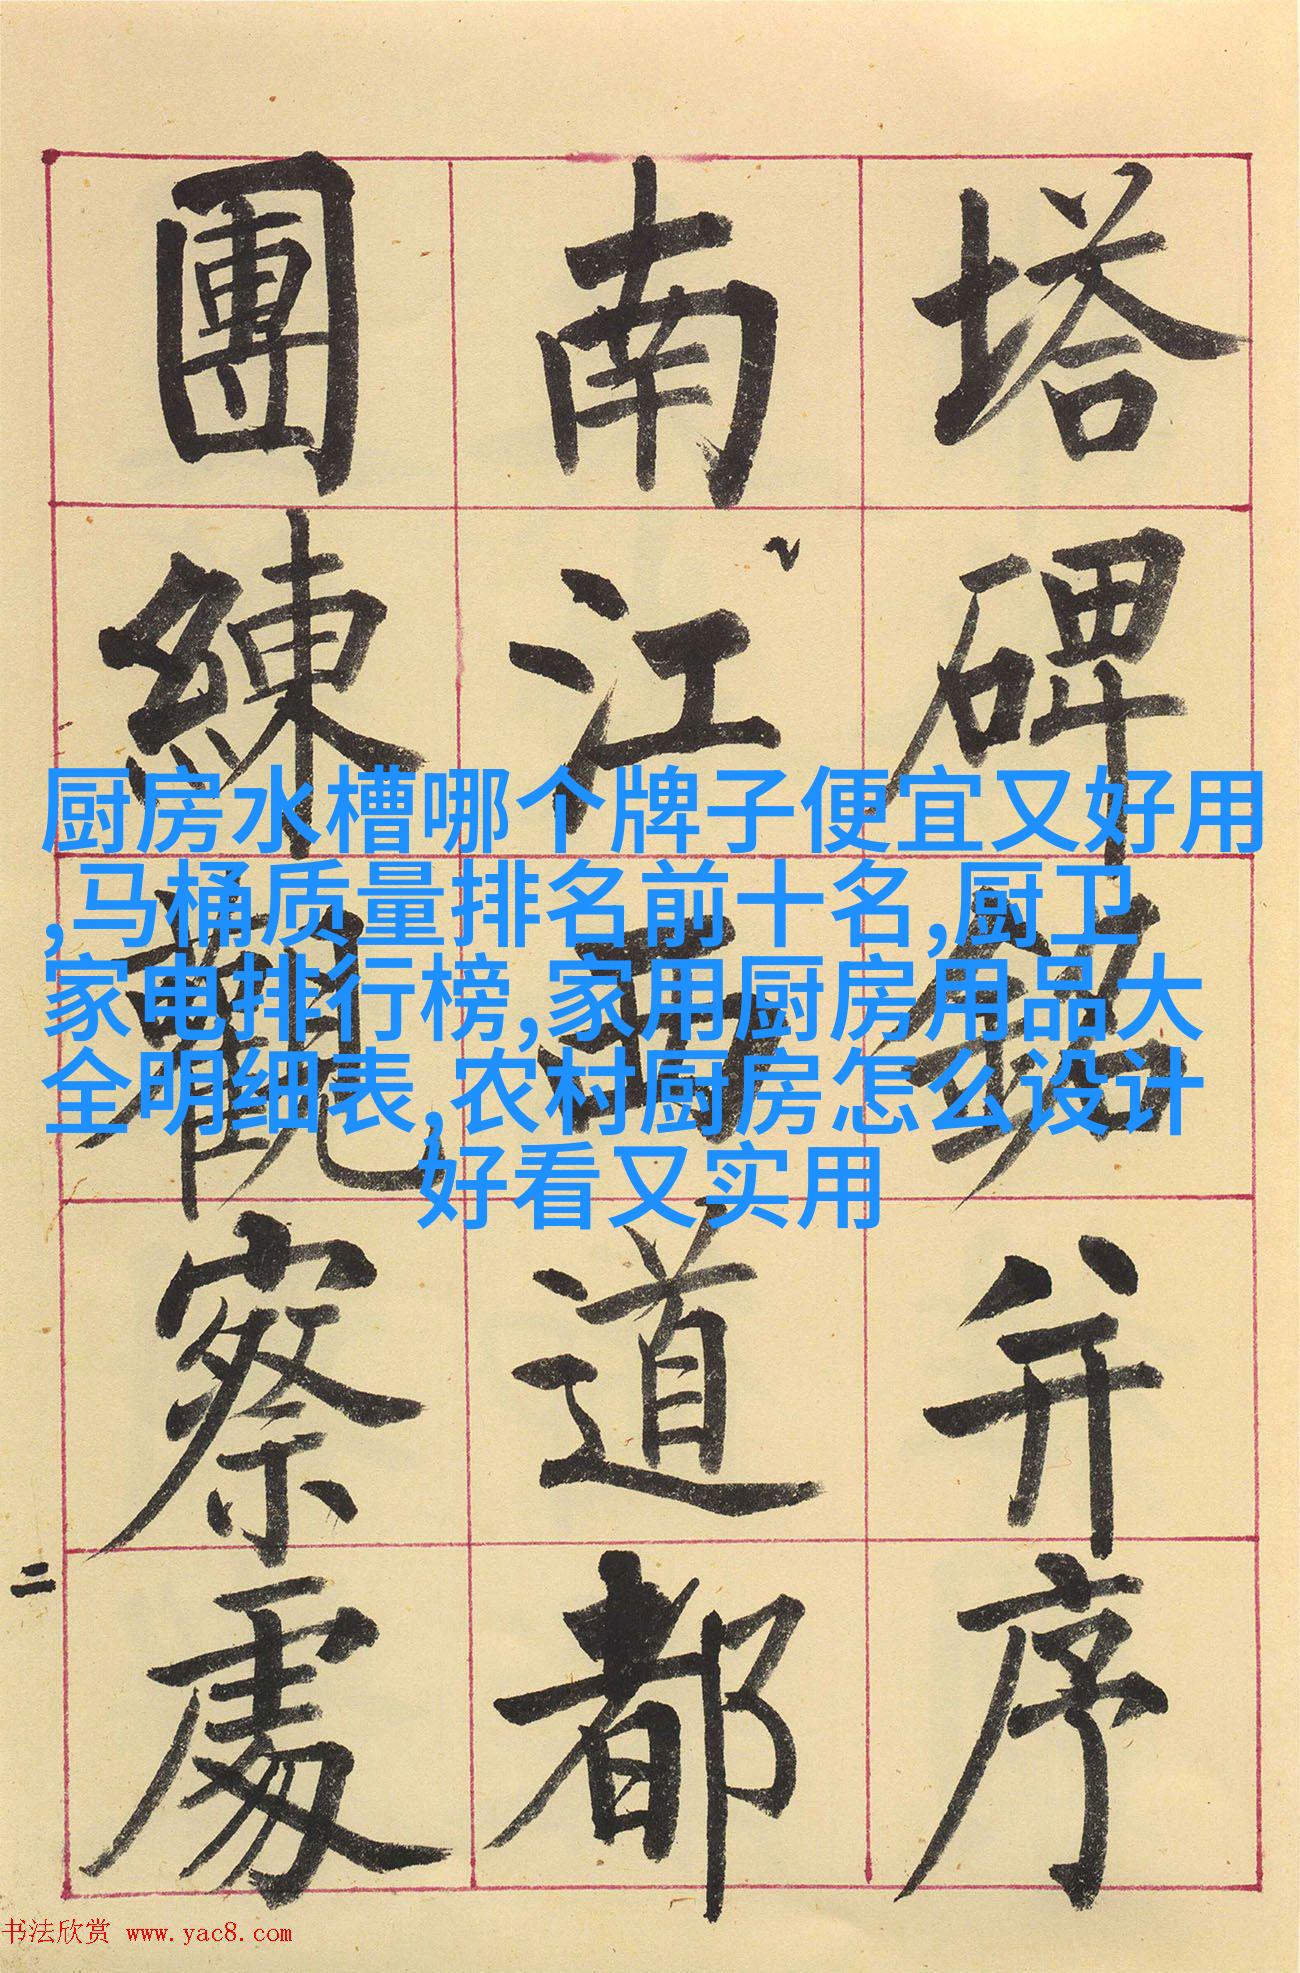 塔碑銘并序
南江西道都
團練觀察處
二
厨房水槽哪个牌子便宜又好用
,马桶质量排名前十名,厨卫
家电排行榜,家用厨房用品大
全明细表,农村厨房怎么设计
好看又实用
书法欣赏 www.yac8.com